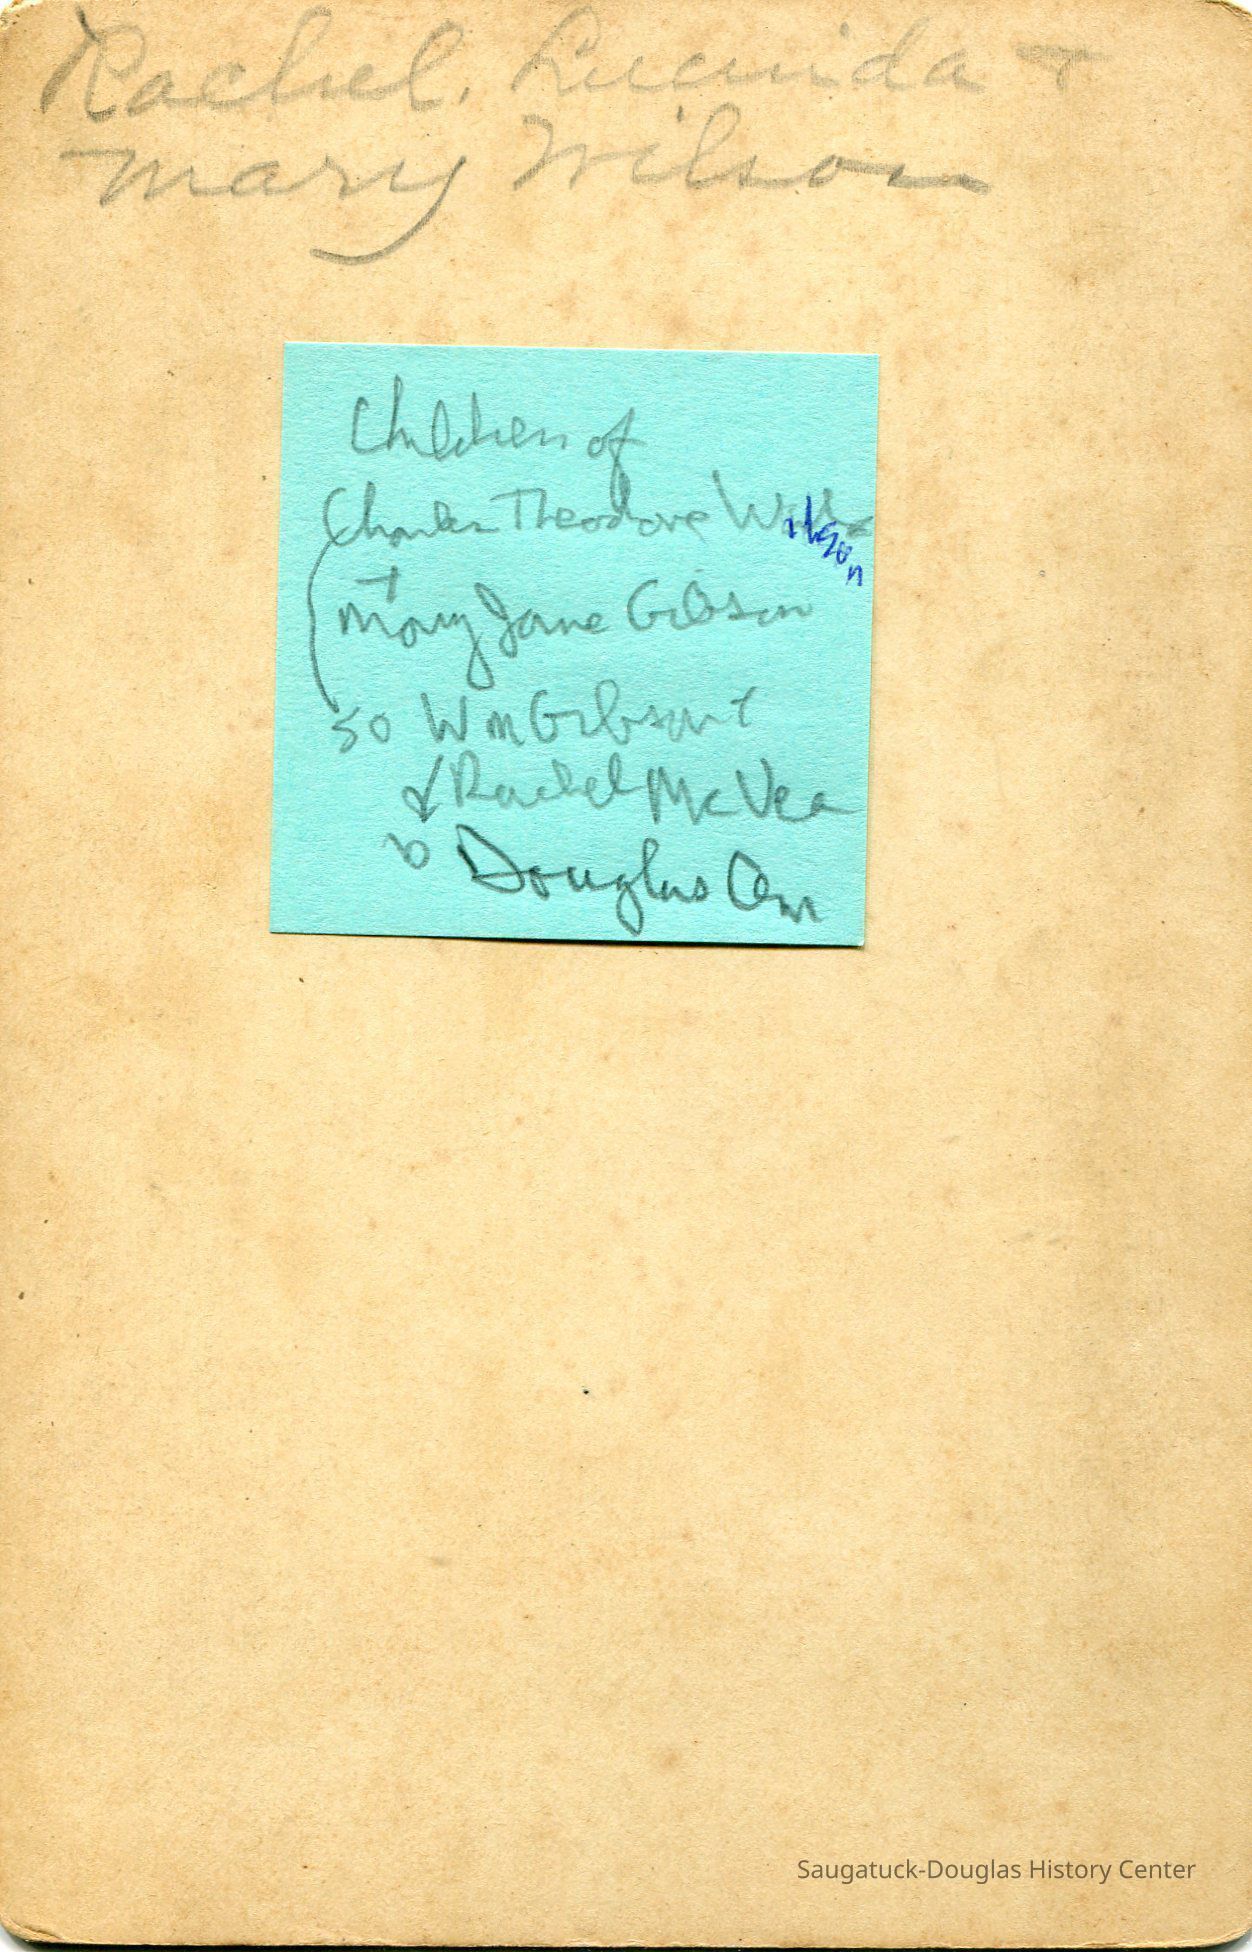 Rachel, Lucinda +
Mary Wilson
Children of
Charles Theodore Wilson
+
Mary Jane Gibson
so Wm Gibson +
Rachel McVea
Douglas
Saugatuck-Douglas History Center